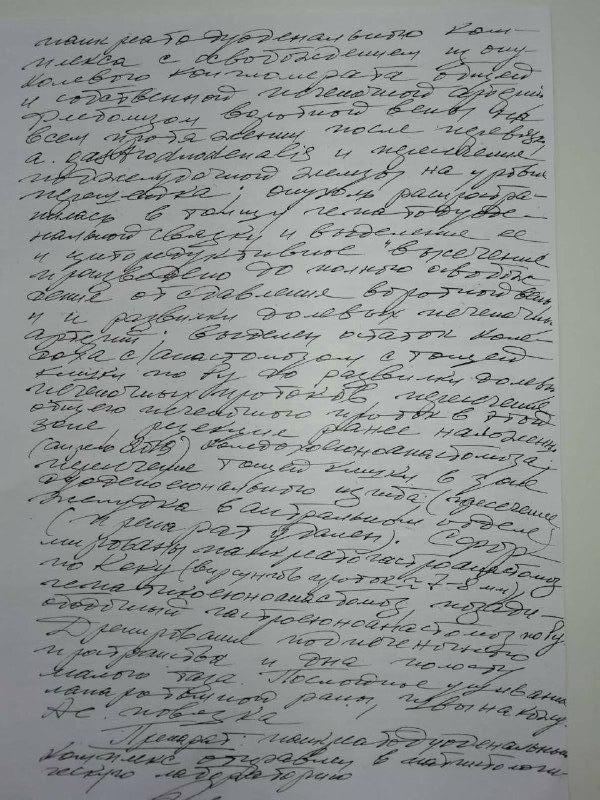 панкреатодуоденального ком-
плекса с освобождением из опу-
холевого конгломерата общей
и собственной печеночной артерии
воротной вены на
всем протяжении после перевязки
a. gastroduodenalis и пересечения
поджелудочной железы на уровне
перешейка; опухоль распростра-
нилась в толщу гепатодуоде-
нальной связки и выделение ее
и циторедуктивное "высечение
произведено до полного освобож-
дения от сдавления воротной вены
и развилки долевых печеночных
артерий. Выделен остаток холе-
доха с анастомозом с тощей
кишки по Ру до развилки долевых
печеночных протоков, пересечение
общего печеночного протока в этой
зоне резекция ранее наложенн.
холедохоеюноанастомоза;
пересечение тощей кишки в зоне
дуоденоеюнального изгиба; (пресечение
желудка в антральном отделе)
(препарат удален). Сфор-
мированы панкреатогастроанастомоз
по (вирсунгов проток ~ 7-8 мм),
гепатикоеюноанастомоз, позади-
ободочный гастроеюноанастомоз по Ру
Дренирование подпеченочного
пространства и дна полости
малого таза. Послойное ушивание
лапаротомной раны, швы на кожу
Ас. повязка
Препарат: панкреатодуоденальный
комплекс отправлен в патологи-
ческую лабораторию